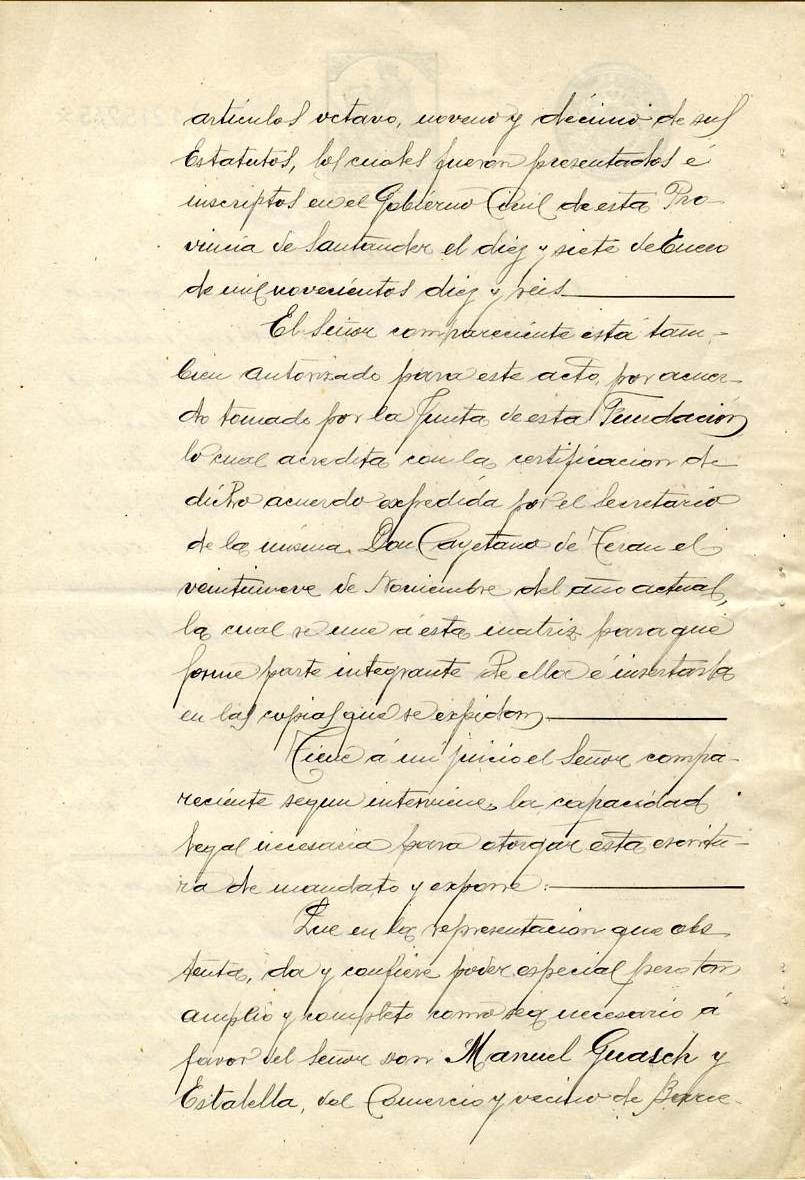 artículos octavo, noveno y décimo de sus
Estatutos, los cuales fueron presentados é
inscriptos en el Gobierno Civil de esta Pro-
vincia de Santander el diez y siete de Enero
de mil novecientos diez y seis
El Señor compareciente está tam-
bien autorizado para este acto, por acuer-
do tomado por la Junta de esta Fundación
lo cual acredita con la certificacion de
dicho acuerdo expedida por el Secretario
de la misma Don Cayetano de Teran el
veintinueve de Noviembre del año actual,
la cual se une á esta matriz para que
forme parte integrante de ella é insertarla
en las copias que se expidan
Tiene á mi juicio el Señor compa-
reciente segun interviene, la capacidad
legal necesaria para otorgar esta escritu-
ra de mandato y expone:
Que en la representacion que os
tenta, da y confiere poder especial pero tan
amplio y completo como sea necesario á
favor del Señor don Manuel Guasch y
Estalella, del Comercio y vecino de Barce-